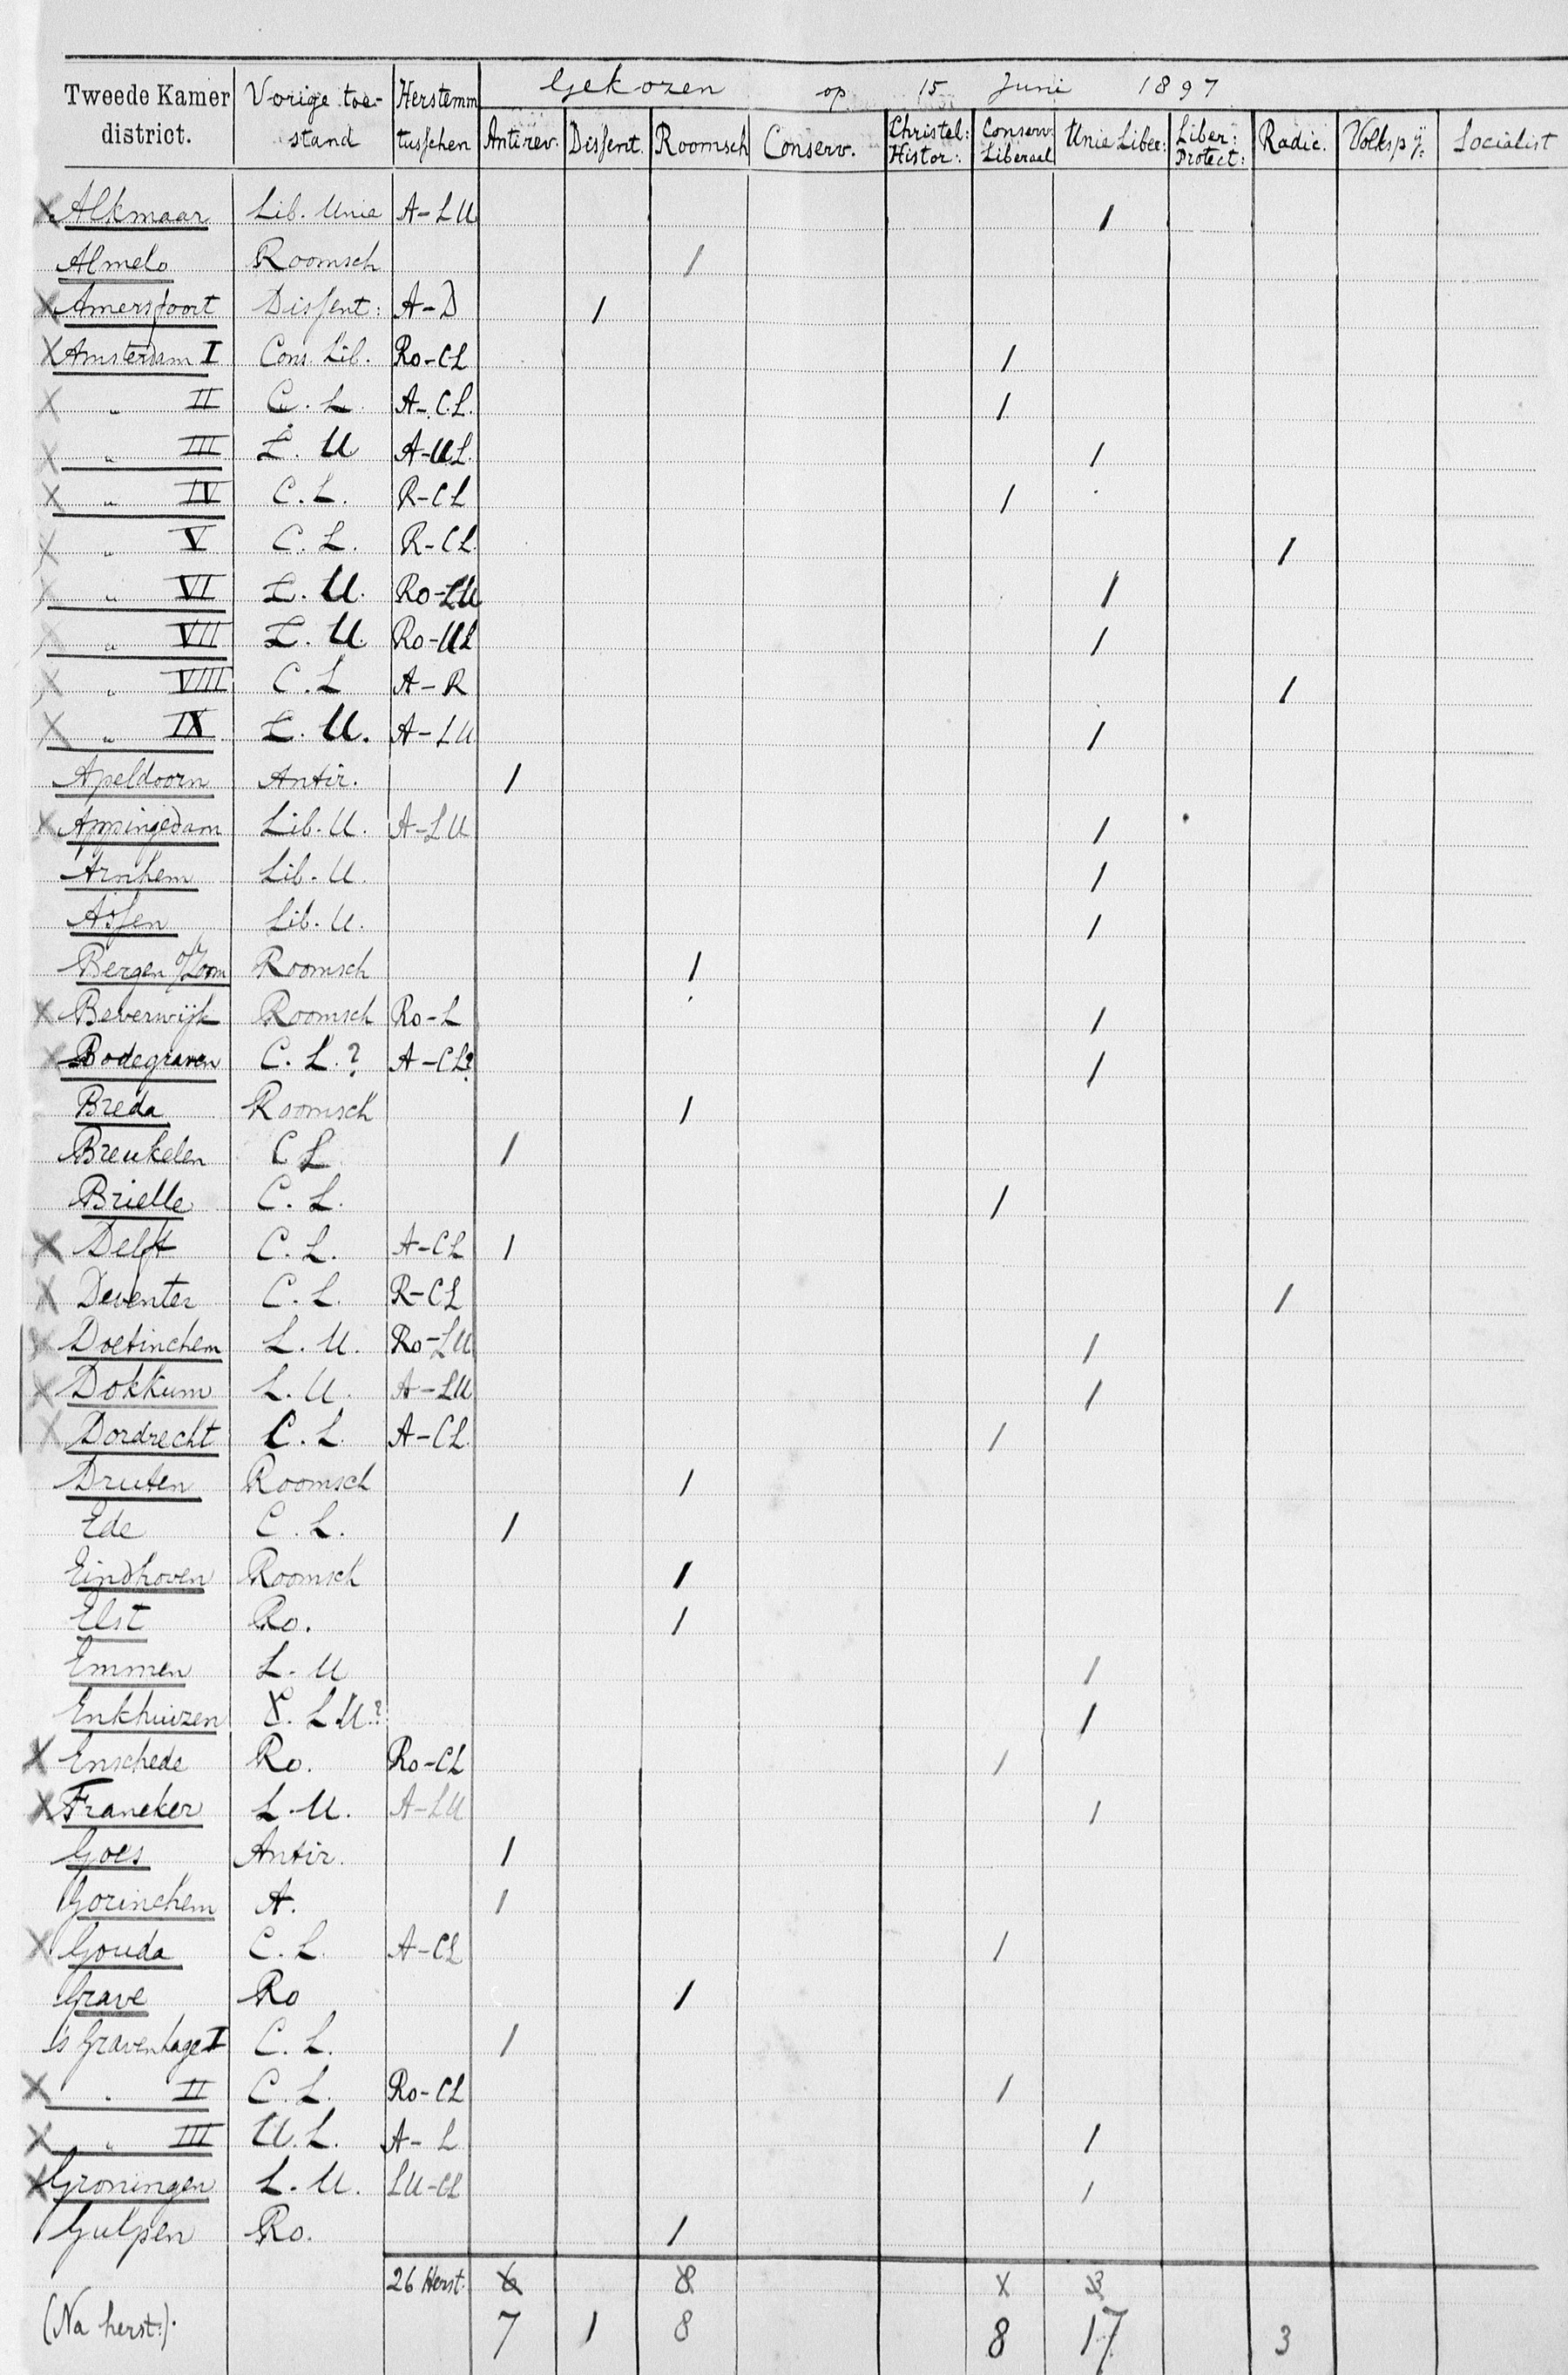 Gekozen op 15 Juni 1897
Tweede Kamer district. Vorige toestand Herstemm tusschen Antirev. Dissent. Roomsch Conserv. Christel: Histor: Conserv: Liberaal Unie Liber: Liber: Protect: Radic. Volksp ij: Socialist
X Alkmaar Lib. Unie A-LU 1
Almelo Roomsch 1
X Amersfoort Dissent: A-D 1
X Amsterdam I Cons. Lib. Ro-CL 1
X " II C. L. A-C.L. 1
X " III L. U A-UL. 1
X " IV C. L. R-CL 1
X " V C. L. R-CL. 1
X " VI L. U. Ro-LU 1
X " VII L. U. Ro-UL 1
X " VIII C. L A-R 1
X " IX L. U. A-LU 1
Apeldoorn Antir. 1
X Appingedam Lib. U. A-LU 1
Arnhem Lib. U. 1
Assen Lib. U. 1
Bergen o/Zoom Roomsch 1
X Beverwijk Roomsch Ro-L 1
X Bodegraven C. L. ? A-CL? 1
Breda Roomsch 1
Breukelen C L 1
Brielle C. L. 1
X Delft C. L. A-CL 1
X Deventer C. L. R-CL 1
X Doetinchem L. U. Ro-LU 1
X Dokkum L. U. A-LU 1
X Dordrecht C. L. A-CL. 1
Druten Roomsch 1
Ede C. L. 1
Eindhoven Roomsch 1
Elst Ro. 1
Emmen L. U 1
Enkhuizen L.U.? 1
X Enschede Ro. Ro-CL 1
X Franeker L. U. A-LU 1
Goes Antir. 1
Gorinchem A. 1
X Gouda C. L. A-CL 1
Grave Ro 1
's Gravenhage I C. L. 1
X " II C. L. Ro-CL 1
X " III U. L. A-L 1
X Groningen L. U. LU-CL 1
Gulpen Ro. 1
26 Herst. 6 8 3
(Na herst:). 7 1 8 8 17 3